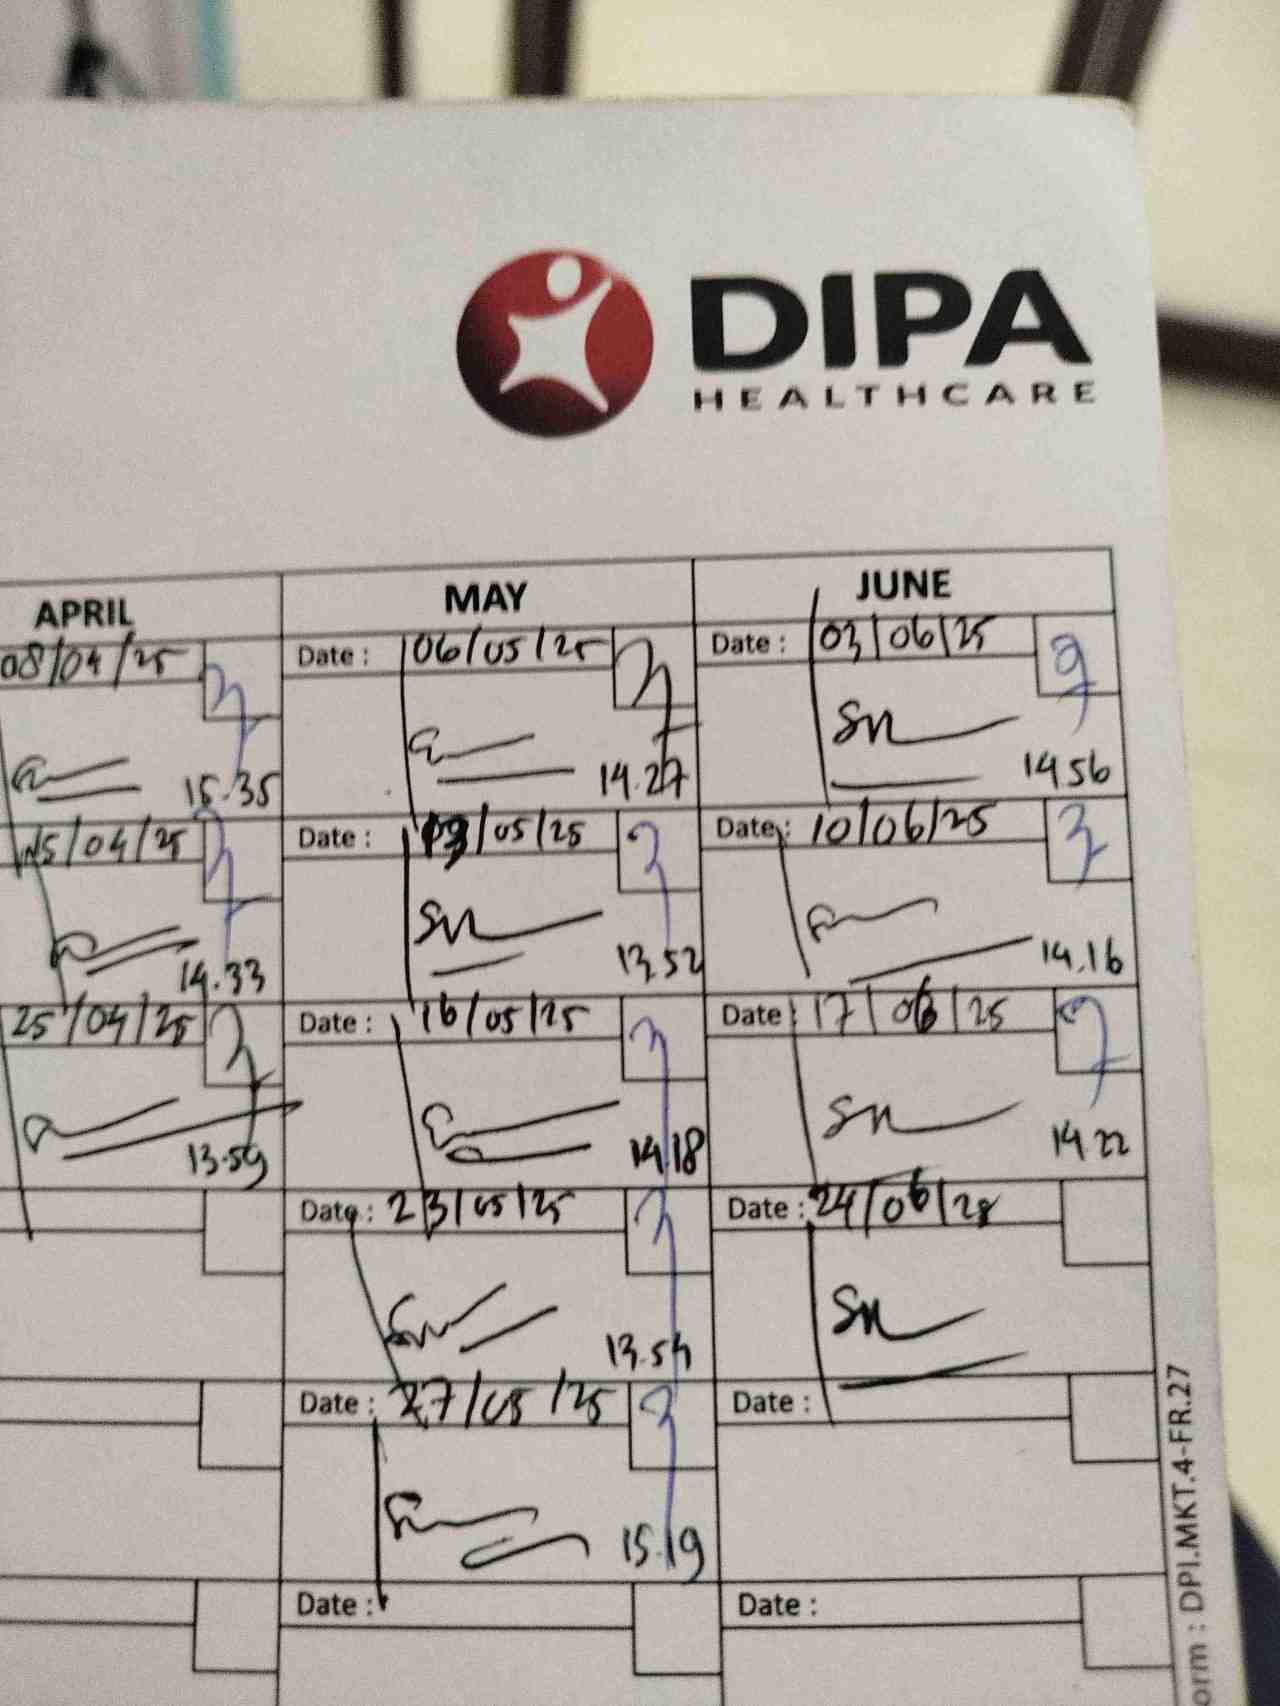 DIPA
HEALTHCARE
APRIL MAY JUNE
08/04/25 Date : 06/05/25 Date : 03/06/25
15.35 14.27 14.56
15/04/25 Date : 09/05/25 Date : 10/06/25
14.33 13.52 14.16
25/04/25 Date : 16/05/25 Date : 17/06/25
13.59 14.18 14.22
Date : 23/05/25 Date : 24/06/25
13.54
Date : 27/05/25 Date :
15.19
Date : Date :
orm : DPI.MKT.4-FR.27